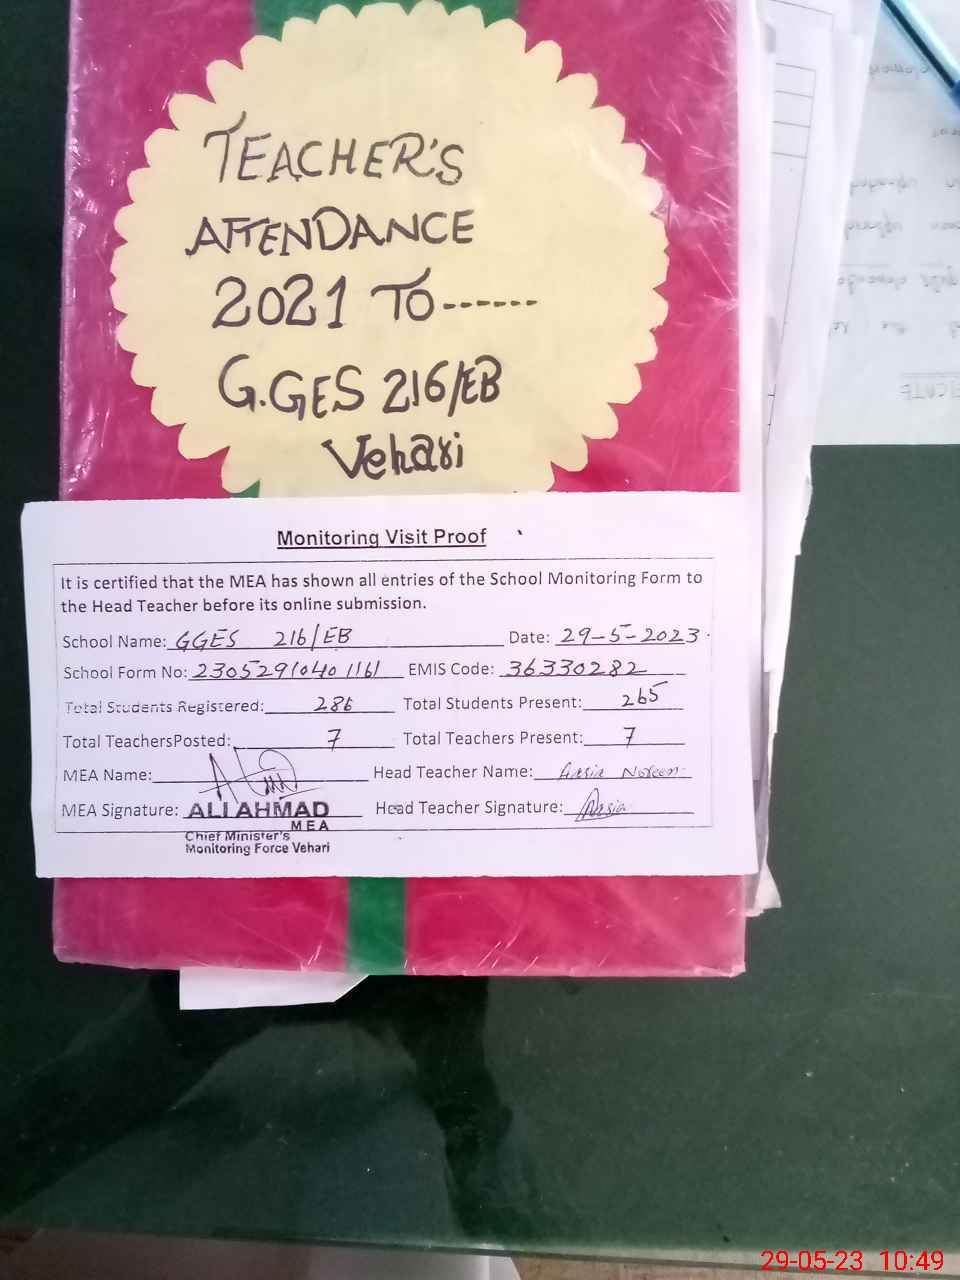 TEACHER'S
ATTENDANCE
2021 TO------
G.GES 216/EB
Vehari
Monitoring Visit Proof
It is certified that the MEA has shown all entries of the School Monitoring Form to
the Head Teacher before its online submission.
School Name: GGES 216/EB Date: 29-5-2023
School Form No: 2305291040 1161 EMIS Code: 36330282
Total Students Registered: 286 Total Students Present: 265
Total TeachersPosted: 7 Total Teachers Present: 7
MEA Name: Head Teacher Name: Aasia Noreen
MEA Signature: ALI AHMAD Head Teacher Signature: Aasia
MEA
Chief Minister's
Monitoring Force Vehari
29-05-23 10:49